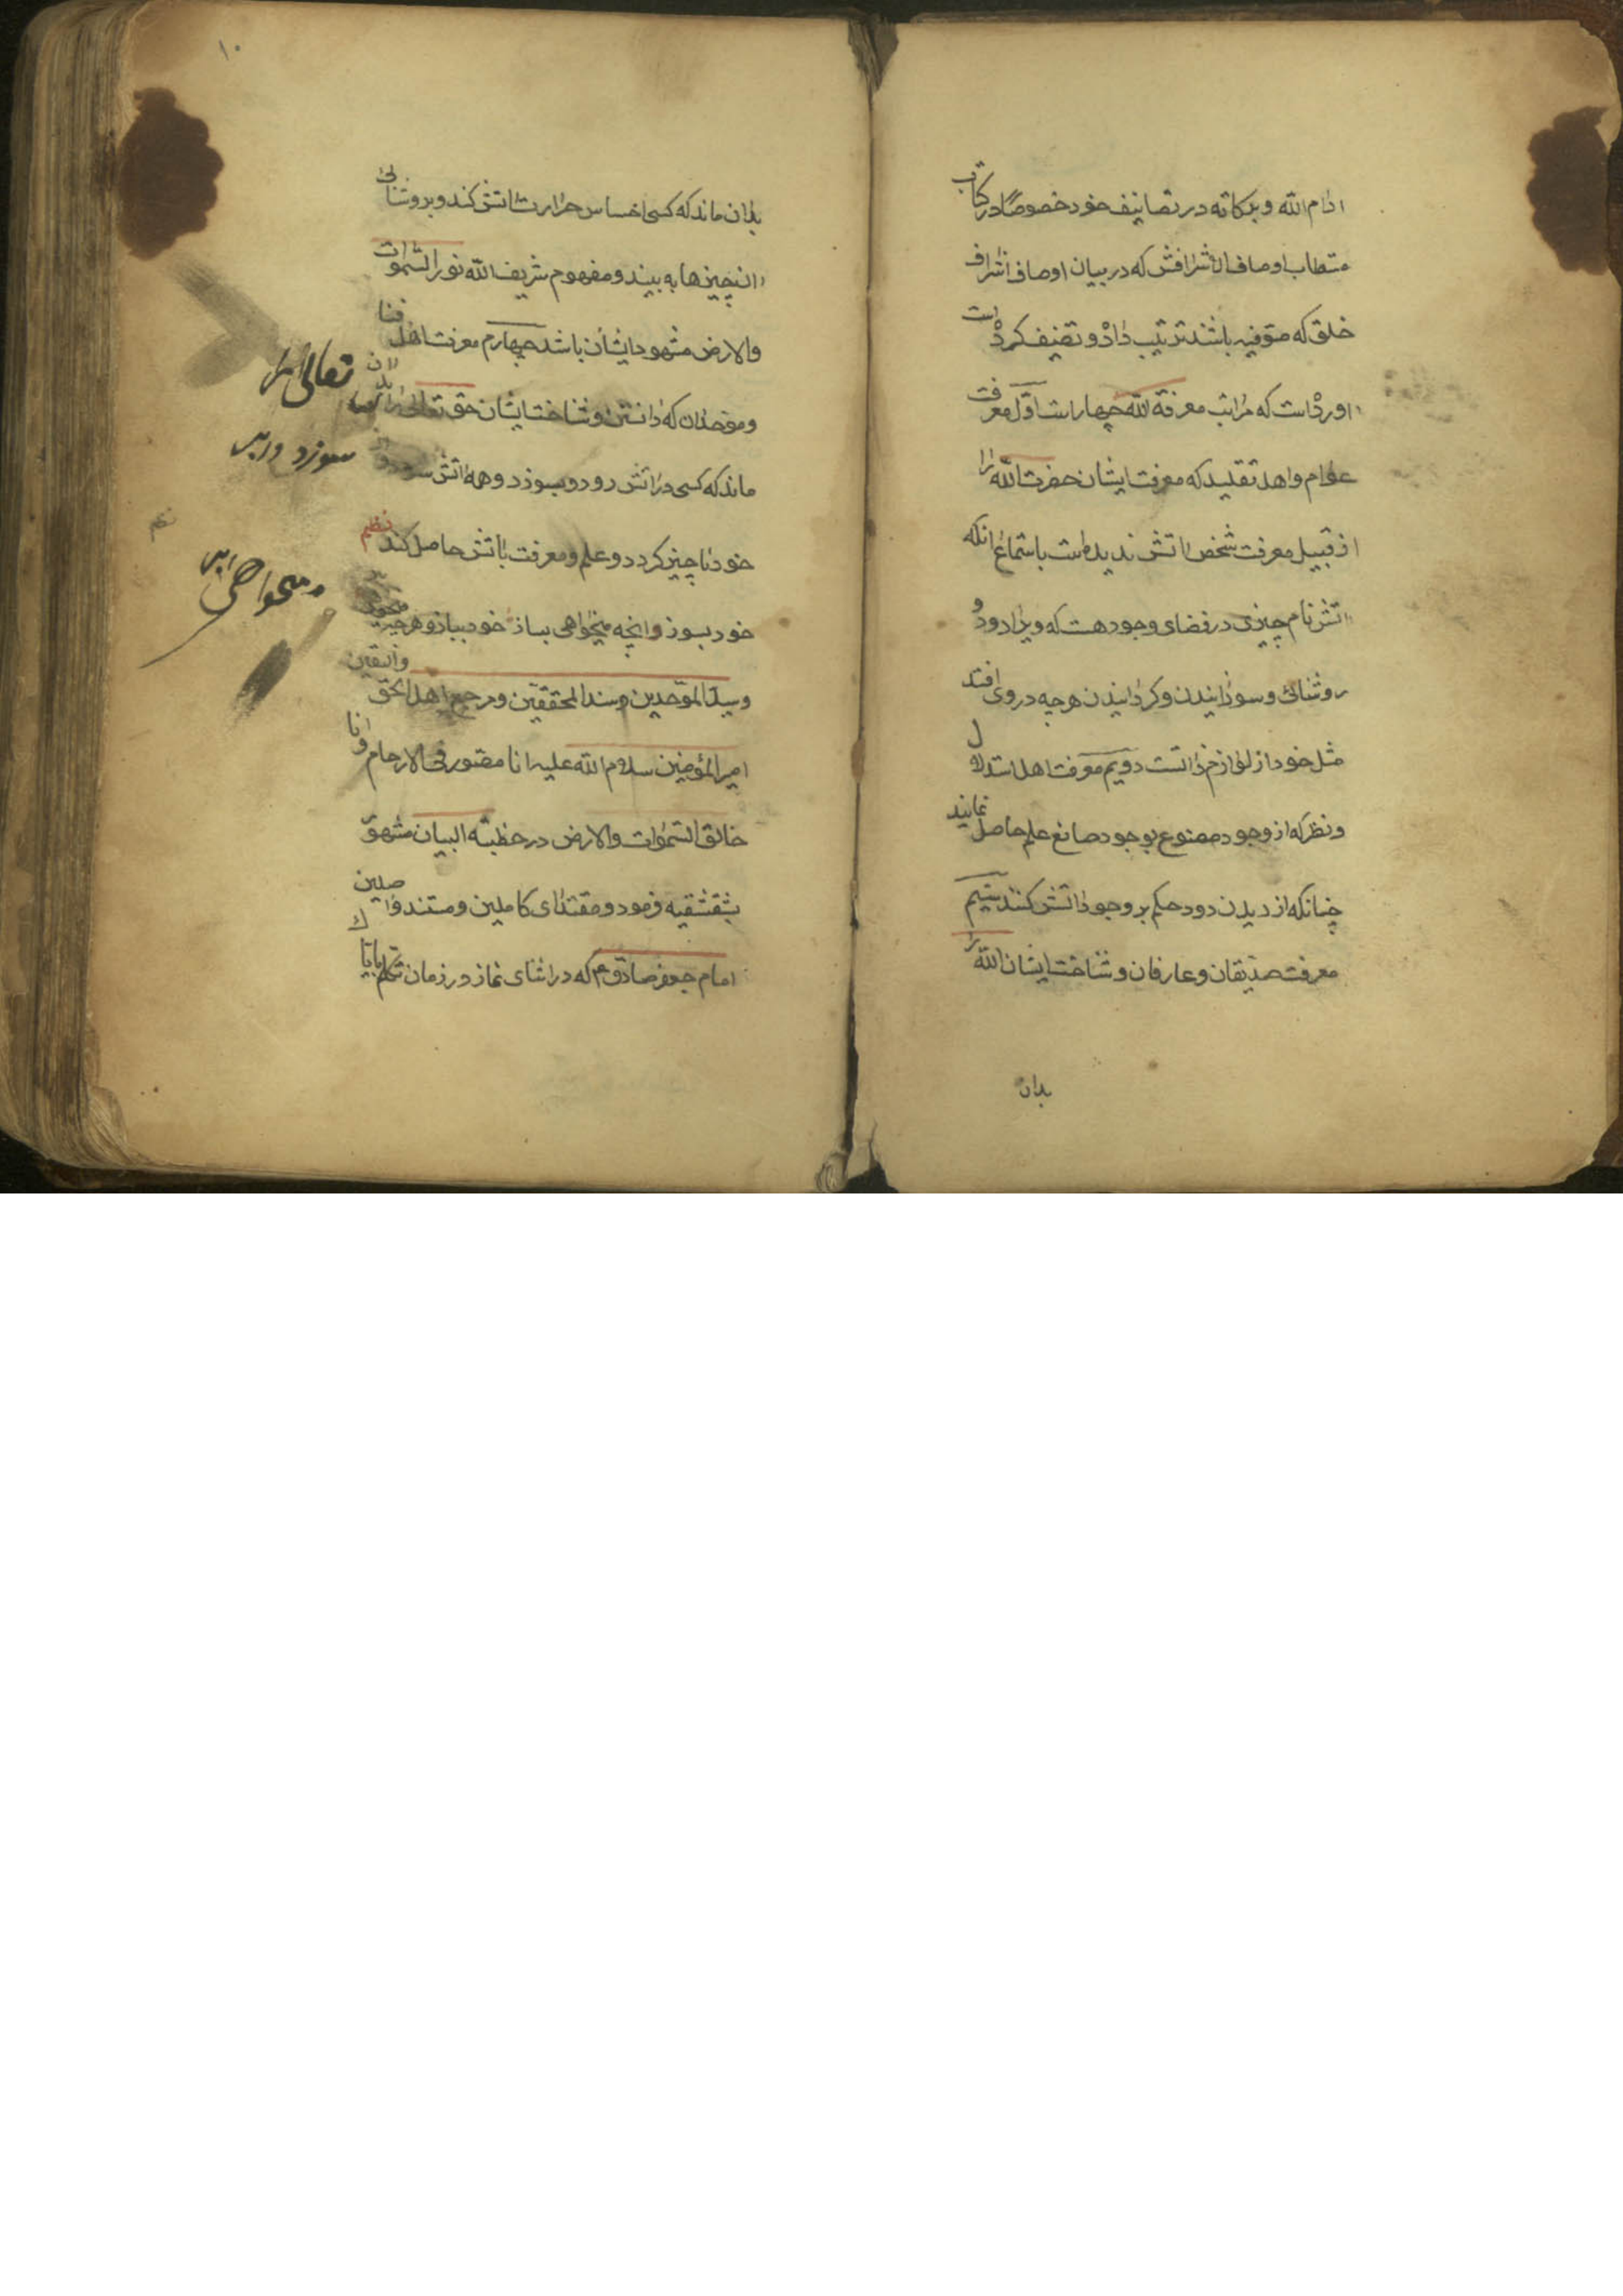 ادام الله و برکاته در تصانیف خود خصوصًا در کتاب
متطاب اوصاف الأشرافش که در بیان اوصاف اشراف
خلق که صوفیه باشند ترتیب داد و تصنیف کرده است
اورده است که مراتب معرفة الله چهار است اوّل معرفت
عوام و اهل تقلید که معرفت ایشان حضرت الله را
از قبیل معرفت شخص اتش ندیده است باستماع انکه
اتش نام چیزی در فضای وجود هست که ویرا دود و
روشنائی و سوزانیدن و کردانیدن هرچه در وی افتد
مثل خود از لوازم ذاتست دویم معرفت اهل استدلال
و نظر که از وجود مصنوع بوجود صانع علم حاصل نمایند
چنانکه از دیدن دود حکم بر وجود اتش کنند سیم
معرفت صدّیقان و عارفان و شناخت ایشان الله را
بدان
۱۰
بدان ماند که کسی احساس حرارت اتش کند و بروشنائی
ان چیزها به بیند و مفهوم شریف الله نور السّموات
والارض مشهود ایشان باشد چهارم معرفت اهل فنا
و موحدان که دانستن و شناخت ایشان حق تعالی را بدان
ماند که کسی در اتش رود و بسوزد و همه اتش
خود ناچیز کردد و علم و معرفت باتش حاصل کند نظم
خود بسوز و انچه میخواهی بساز خود بباز و هرچه
و سیّد الموّحدین و سند المحققین و مرجع اهل الحق والیقین
امیر المؤمنین سلام الله علیه انا مصّور فی الارحام و انا
خالق السّموات والارض در خطبة البیان مشهور
بشقشقیه فرمود و مقتدای کاملین و مستند واصلین
امام جعفر صادق ع م که در اثنای نماز در زمان تکلم بایاک
تعالی را
سوزد و از
نظم
میخواهی